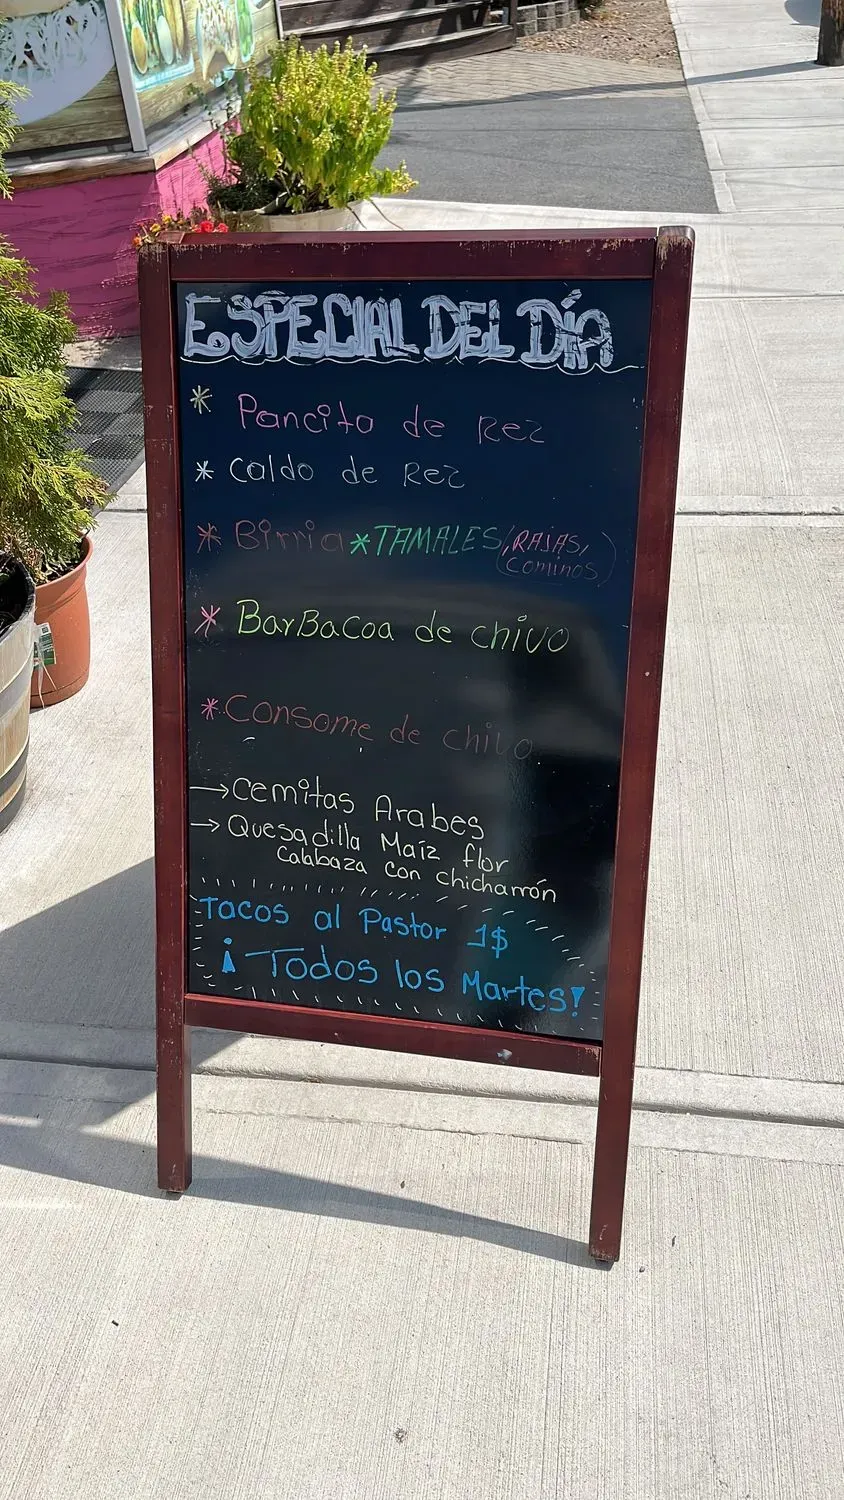 ESPECIAL DEL DÍA
* Pancito de Rez
* Caldo de Rez
* Birria * TAMALES (RAJAS,
Cominos)
* BarBacoa de chivo
* Consome de chivo
→ Cemitas Arabes
→ Quesadilla Maíz flor
Calabaza con chicharrón
Tacos al Pastor 1$
¡Todos los Martes!